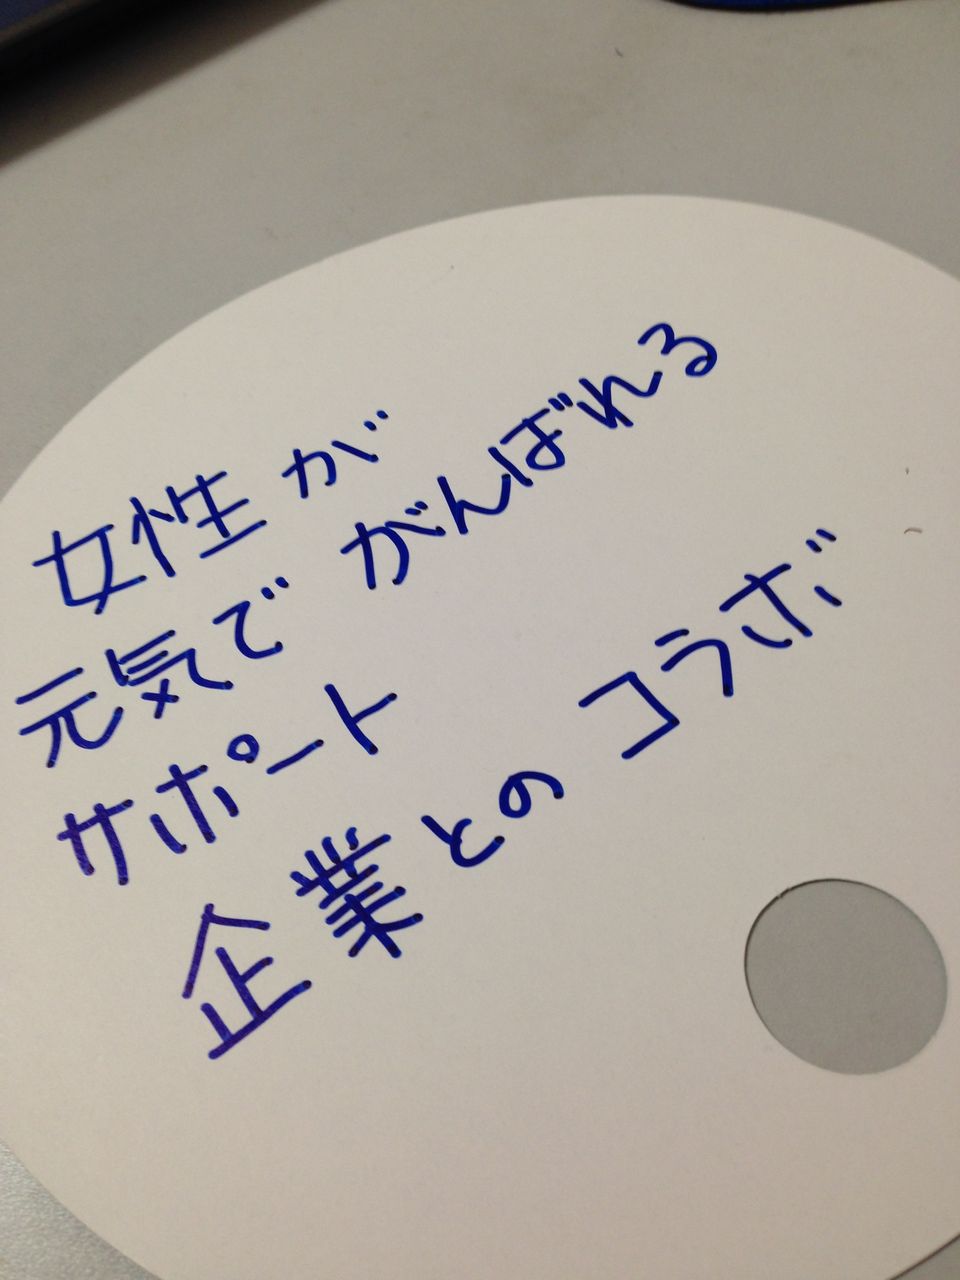 女性が
元気でがんばれる
サポート
企業とのコラボ